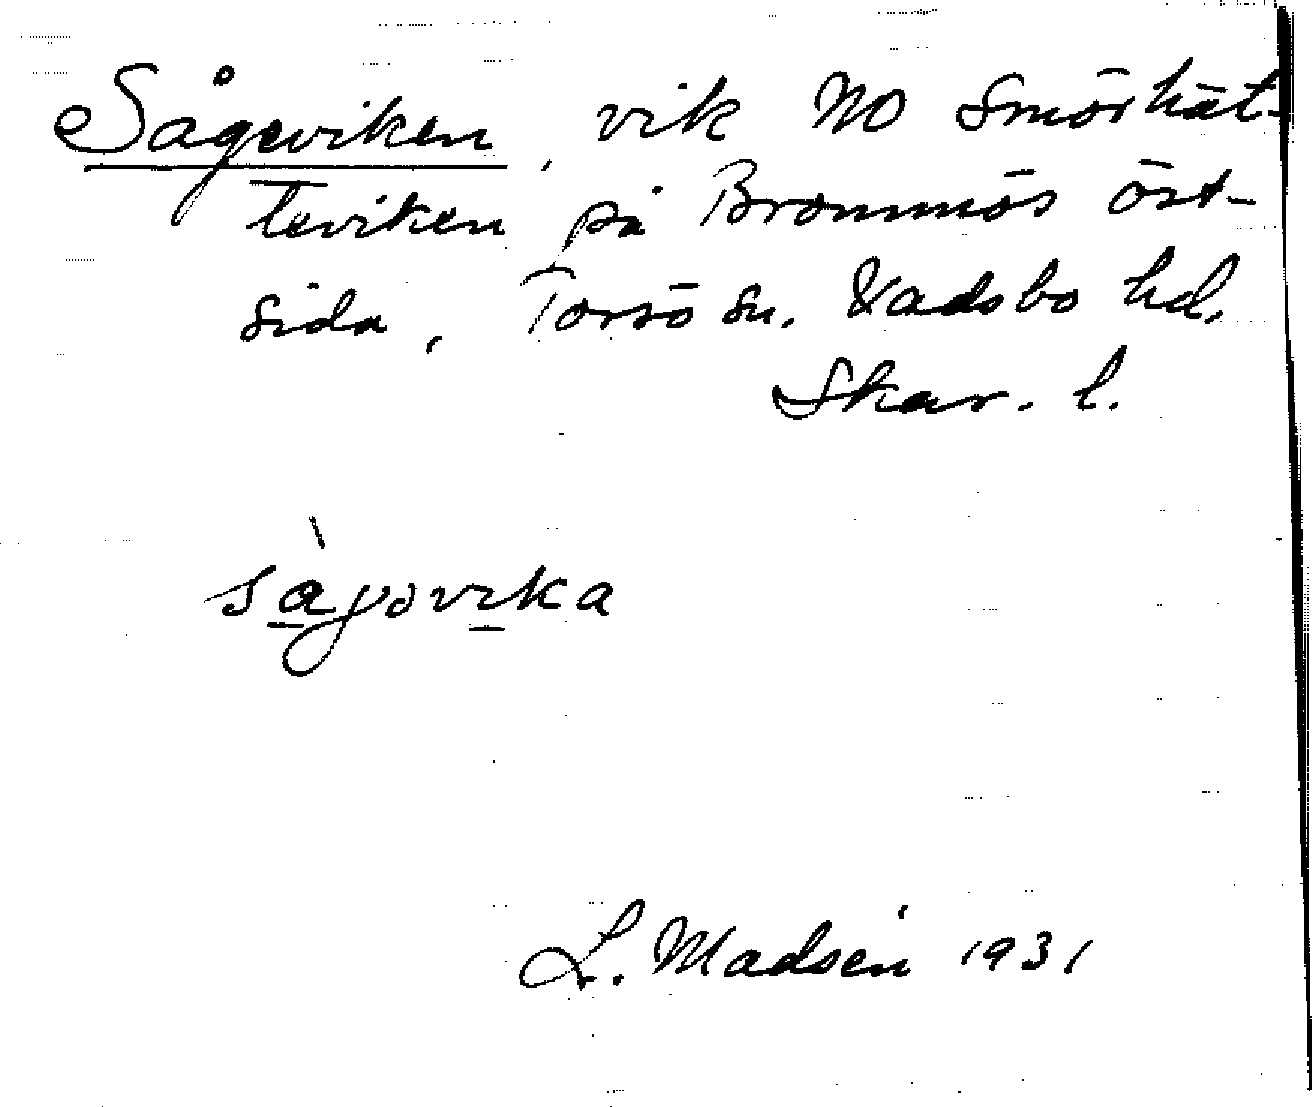 Sågeviken, vik NO Smörhät-
teviken på Brommös öst-
sida, Torsö sn. Vadsbo hd,
Skar. l.
sàgǝvika
L. Madsén 1931